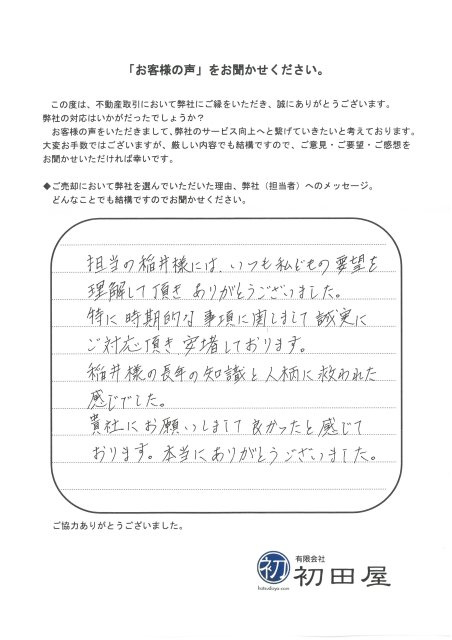 「お客様の声」をお聞かせください。
この度は、不動産取引において弊社にご縁をいただき、誠にありがとうございます。
弊社の対応はいかがだったでしょうか？
お客様の声をいただきまして、弊社のサービス向上へと繋げていきたいと考えております。
大変お手数ではございますが、厳しい内容でも結構ですので、ご意見・ご要望・ご感想を
お聞かせいただければ幸いです。
◆ご売却において弊社を選んでいただいた理由、弊社（担当者）へのメッセージ。
どんなことでも結構ですのでお聞かせください。
担当の稲井様には、いつも私どもの要望を
理解して頂き ありがとうございました。
特に時期的な事項に関しまして誠実に
ご対応頂き安堵しております。
稲井様の長年の知識と人柄に救われた
感じでした。
貴社にお願いしまして良かったと感じて
おります。本当にありがとうございました。
ご協力ありがとうございました。
初
hatsudaya.com
有限会社
初田屋